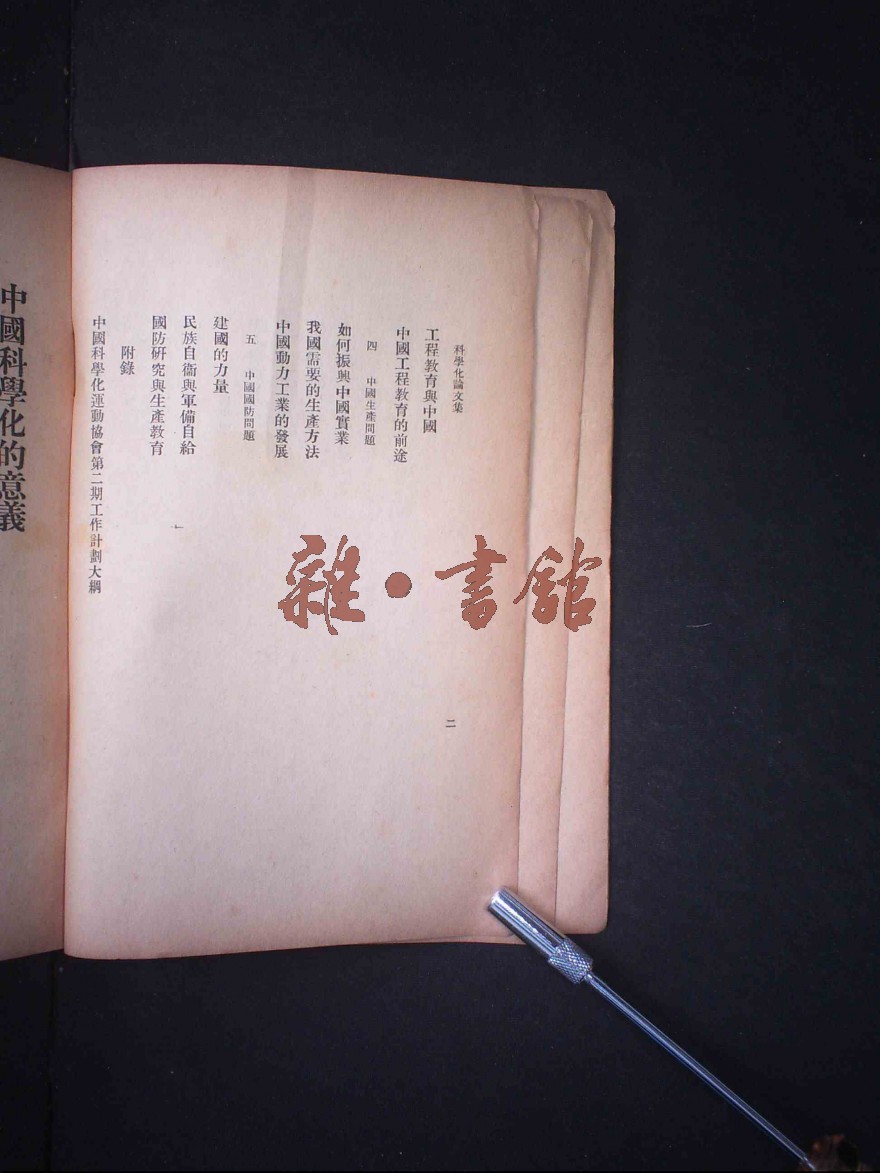 科學化論文集
工程教育與中國
中國工程教育的前途
四 中國生產問題
如何振興中國實業
我國需要的生產方法
中國動力工業的發展
五 中國國防問題
建國的力量
民族自衞與軍備自給
國防研究與生產教育
附錄
中國科學化運動協會第二期工作計劃大綱
二
中國科學化的意義
雜·書館